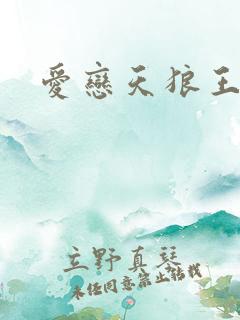 愛戀天狼王
立野真琴
未经同意禁止转载